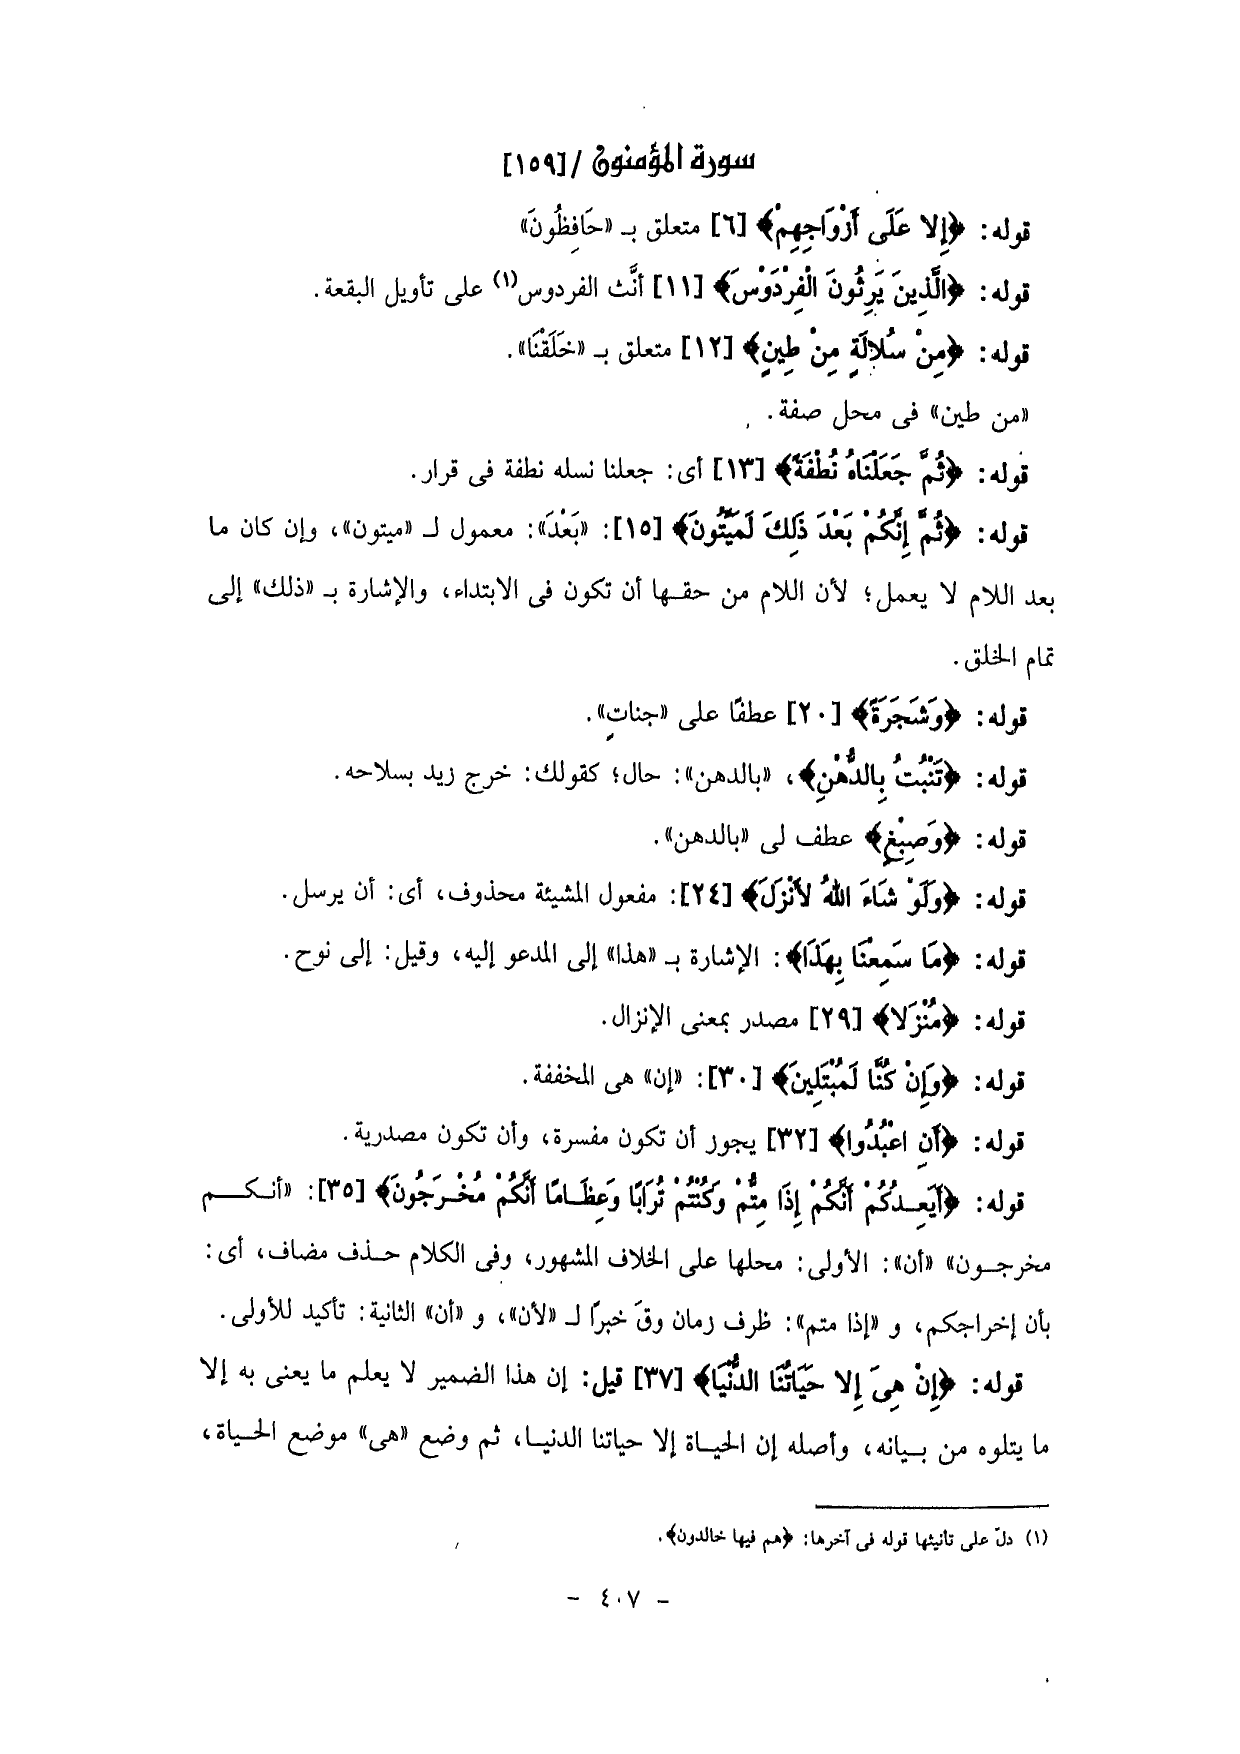 سورة المؤمنون / [١٥٩]
قوله: ﴿إِلا عَلَى أَزْوَاجِهِمْ﴾ [٦] متعلق بـ «حَافِظُونَ»
قوله: ﴿الَّذِينَ يَرِثُونَ الْفِرْدَوْسَ﴾ [١١] أنَّث الفردوس(١) على تأويل البقعة.
قوله: ﴿مِنْ سُلالَةٍ مِنْ طِينٍ﴾ [١٢] متعلق بـ «خَلَقْنَا».
«من طين» فى محل صفة.
قوله: ﴿ثُمَّ جَعَلْنَاهُ نُطْفَةً﴾ [١٣] أى: جعلنا نسله نطفة فى قرار.
قوله: ﴿ثُمَّ إِنَّكُمْ بَعْدَ ذَلِكَ لَمَيِّتُونَ﴾ [١٥]: «بَعْدَ»: معمول لـ «ميتون»، وإن كان ما
بعد اللام لا يعمل؛ لأن اللام من حقها أن تكون فى الابتداء، والإشارة بـ «ذلك» إلى
تمام الخلق.
قوله: ﴿وَشَجَرَةً﴾ [٢٠] عطفًا على «جناتٍ».
قوله: ﴿تَنْبُتُ بِالدُّهْنِ﴾، «بالدهن»: حال؛ كقولك: خرج زيد بسلاحه.
قوله: ﴿وَصِبْغٍ﴾ عطف لى «بالدهن».
قوله: ﴿وَلَوْ شَاءَ اللهُ لأَنْزَلَ﴾ [٢٤]: مفعول المشيئة محذوف، أى: أن يرسل.
قوله: ﴿مَا سَمِعْنَا بِهَذَا﴾: الإشارة بـ «هذا» إلى المدعو إليه، وقيل: إلى نوح.
قوله: ﴿مُنْزَلا﴾ [٢٩] مصدر بمعنى الإنزال.
قوله: ﴿وَإِنْ كُنَّا لَمُبْتَلِينَ﴾ [٣٠]: «إن» هى المخففة.
قوله: ﴿أَنِ اعْبُدُوا﴾ [٣٢] يجوز أن تكون مفسرة، وأن تكون مصدرية.
قوله: ﴿أَيَعِدُكُمْ أَنَّكُمْ إِذَا مِتُّمْ وَكُنْتُمْ تُرَابًا وَعِظَامًا أَنَّكُمْ مُخْرَجُونَ﴾ [٣٥]: «أنكم
مخرجون» «أن»: الأولى: محلها على الخلاف المشهور، وفى الكلام حذف مضاف، أى:
بأن إخراجكم، و «إذا متم»: ظرف زمان وقَ خبرًا لـ «لأن»، و «أن» الثانية: تأكيد للأولى.
قوله: ﴿إِنْ هِىَ إِلا حَيَاتُنَا الدُّنْيَا﴾ [٣٧] قيل: إن هذا الضمير لا يعلم ما يعنى به إلا
ما يتلوه من بيانه، وأصله إن الحياة إلا حياتنا الدنيا، ثم وضع «هى» موضع الحياة،
(١) دلّ على تأنيثها قوله فى آخرها: ﴿هم فيها خالدون﴾.
- ٤٠٧ -